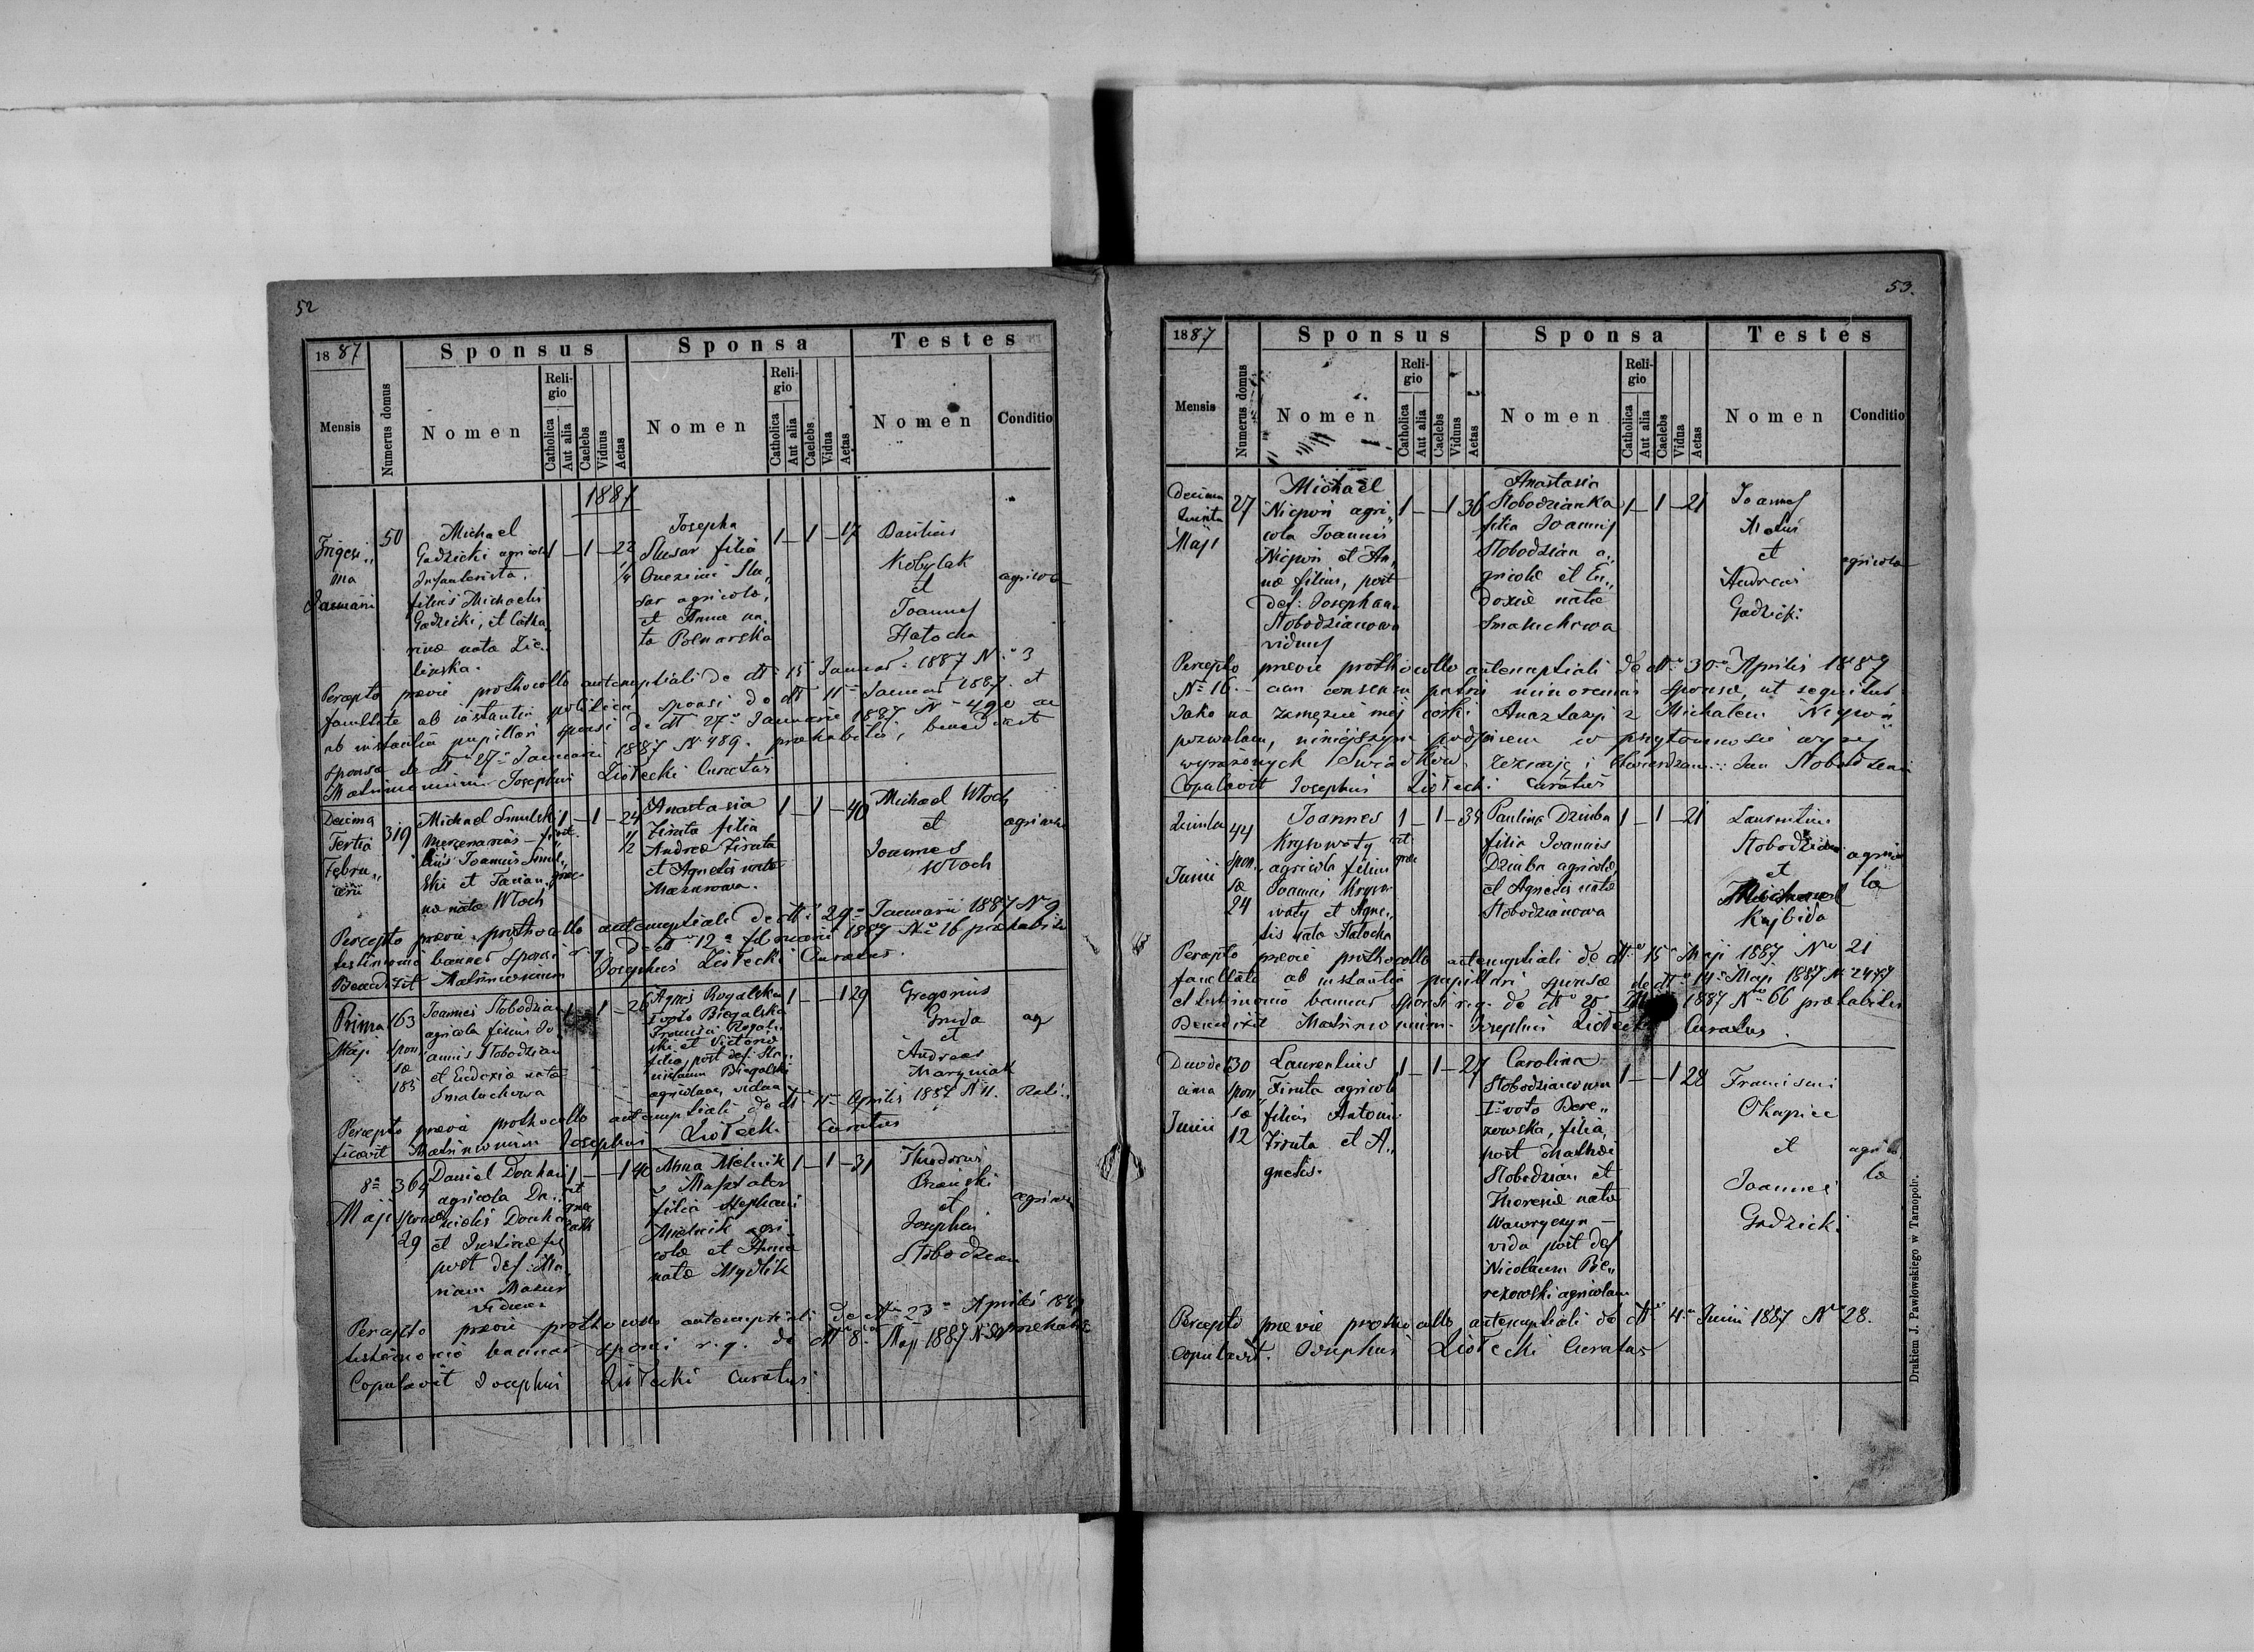 52
1887
Mensis
Numerus domus
Sponsus
Nomen
Religio
Catholica
Aut alia
Caelebs
Viduus
Aetas
Sponsa
Nomen
Religio
Catholica
Aut alia
Caelebs
Vidua
Aetas
Testes
Nomen
Conditio
1887
Trigesi„
ma
Januarii
50
Michael
Gadzicki agricola
Infanterista,
filius Michaelis
Gadzicki, et Catha„
rinae nata Zie„
linska.
1 – 1 – 22
Josepha
Slusar filia
Onezimi Slu„
sar agricola,
et Anna na„
ta Bednarska
1 – 1 – 17
Basilius
Kobylak
et
Joannes
Hatocha
agricola
Percepto praevie prothocollo antenuptiali de dtt 15 Januar. 1887 No 3
facultate ab instantia politica sponsi de dtt 11 Januar 1887. et
ab instantia pupillari sponsi de dtt 27 Januarii 1887 No 490 ac
sponsae de dtt 27 Januarii 1887 No 489. praehabitis, benedixit
Matrimonium Josephus Ziołecki Curatus
Decima
Tertia
Febru„
arii
319
Michael Smulski
mercenarius – fi„
lius Joannis Smul„
ski et Tacian„
nae nata Włoch
rit.
graec
1 – 1 – 24
1/2
Anastasia
Ziruta filia
Andreae Ziruta
et Agnetis nata
Mazurowa.
1 – 1 – 40
Michael Włoch
et
Joannes
Włoch
agricolae
Percepto praevie prothocollo antenuptiali de dtt 29 Januarii 1887 No 9
testimonio bannor sponsi r. g. de dtt 12 februarii 1887 No 16 praehabitis
Benedixit Matrimonium Josephus Ziołecki Curatus.
Prima
Maji
163
spon
sae
185
Joannes Slobodzian
agricola filius Jo
annis Slobodzian
et Eudoxia nata
Smaluchowa
1 – 1 – 26
Agnes Rogalska
I voto Biegalska
Francisci Rogal„
ski et Victoria
filia, post def. Sta„
nislaum Biegalski
agricolam, vidua
1 – – 1 29
Gregorius
Gruda
et
Andreas
Maryniak
agr
Percepto praevia prothocollo antenuptiali de dtt 11 Aprilis 1887 N 11. Rati„
ficavit Matrimonium Josephus Ziołecki Curatus
8a
Maji
364
sponsae
29
Daniel Donhan
agricola Da„
nielis Donhan
et Justinae fil
post def. Ma„
riam Mazur
viduus
rit
graec
cath
1 – – 1 40
Anna Melnik
filia Stephani
Mielnik agri„
colae et Anna
nata Mydlik
1 – 1 – 31
Theodorus
et
Josephus
Slobodzian
agricolae
Percepto praevie prothocollo antenuptiali de dtt 23 Aprilis 1887
testimonio bannor sponsi r. g. de dtt 8 Maji 1887 N praehabitis
Copulavit Josephus Ziołecki Curatus
53.
1887
Mensis
Numerus domus
Sponsus
Nomen
Religio
Catholica
Aut alia
Caelebs
Viduus
Aetas
Sponsa
Nomen
Religio
Catholica
Aut alia
Caelebs
Vidua
Aetas
Testes
Nomen
Conditio
Decima
Quinta
Maji
27
Michael
Niepoń agri„
cola Joannis
Niepoń et An„
nae filius, post
def: Josepham
Slobodzianowa
viduus
1 – – 1 36
Anastasia
Slobodzianka
filia Joannis
Slobodzian a„
gricolae et Eu„
doxiae nata
Smaluchowa
1 – 1 – 21
Joannes
et
Andreas
Gadzicki
agricolae
Percepto praevie prothocollo antenuptiali de dtt 30 Aprilis 1887
No 16. – cum consensu patris minorennis sponsae, ut sequitur:
Jako na zamęzcie mej córki Anastazyi z Michałem Niepoń
pozwalam, niniejszym podpisem w przytomności wyżej
wyrażonych Świadków zeznaję i stwierdzam: Jan Slobodzian
Copulavit Josephus Ziołecki Curatus
Quinta
Junii
44
spon
sae
24
Joannes
Krysowaty
agricola filius
Joannis Kryso
waty et Agne„
tis nata Hatocha
rit
graec
1 – 1 – 35
Paulina Dziuba
filia Joannis
Dziuba agricolae,
et Agnetis nata
Slobodzianowa
1 – 1 – 21
Laurentius
Slobodzian
et
Michael
Kajbida
agrico
lae
Percepto praevie prothocollo antenuptiali de dtt 15 Maji 1887 No 21
facultate ab instantia pupillari sponsae de dtt 14 Maji 1887 No 2477
et testimonio bannor sponsi r. g. de dtto 20 1887 No 66 praehabitis
Benedixit Matrimonium. Josephus Ziołecki Curatus.
Duode
cima
Junii
30
spon
sae
12
Laurentius
Ziruta agricola
filius Antonii
Ziruta et A„
gnetis.
1 – 1 – 27
Carolina
Slobodzianowna
I voto Bere„
zowska, filia,
post Mathaei
Slobodzian et
nata
Wawryczyn –
vida post def
Nicolaum Be„
rezowski agricolam
1 – – 1 28
Franciscus
Okapiec
et
Joannes
Gadzicki
agrico
lae
Percepto praevie prothocollo antenuptiali de dtt 4 Junii 1887 No 28.
Copulavit. Josephus Ziołecki Curatus
Drukiem J. Pawłowskiego w Tarnopolu.